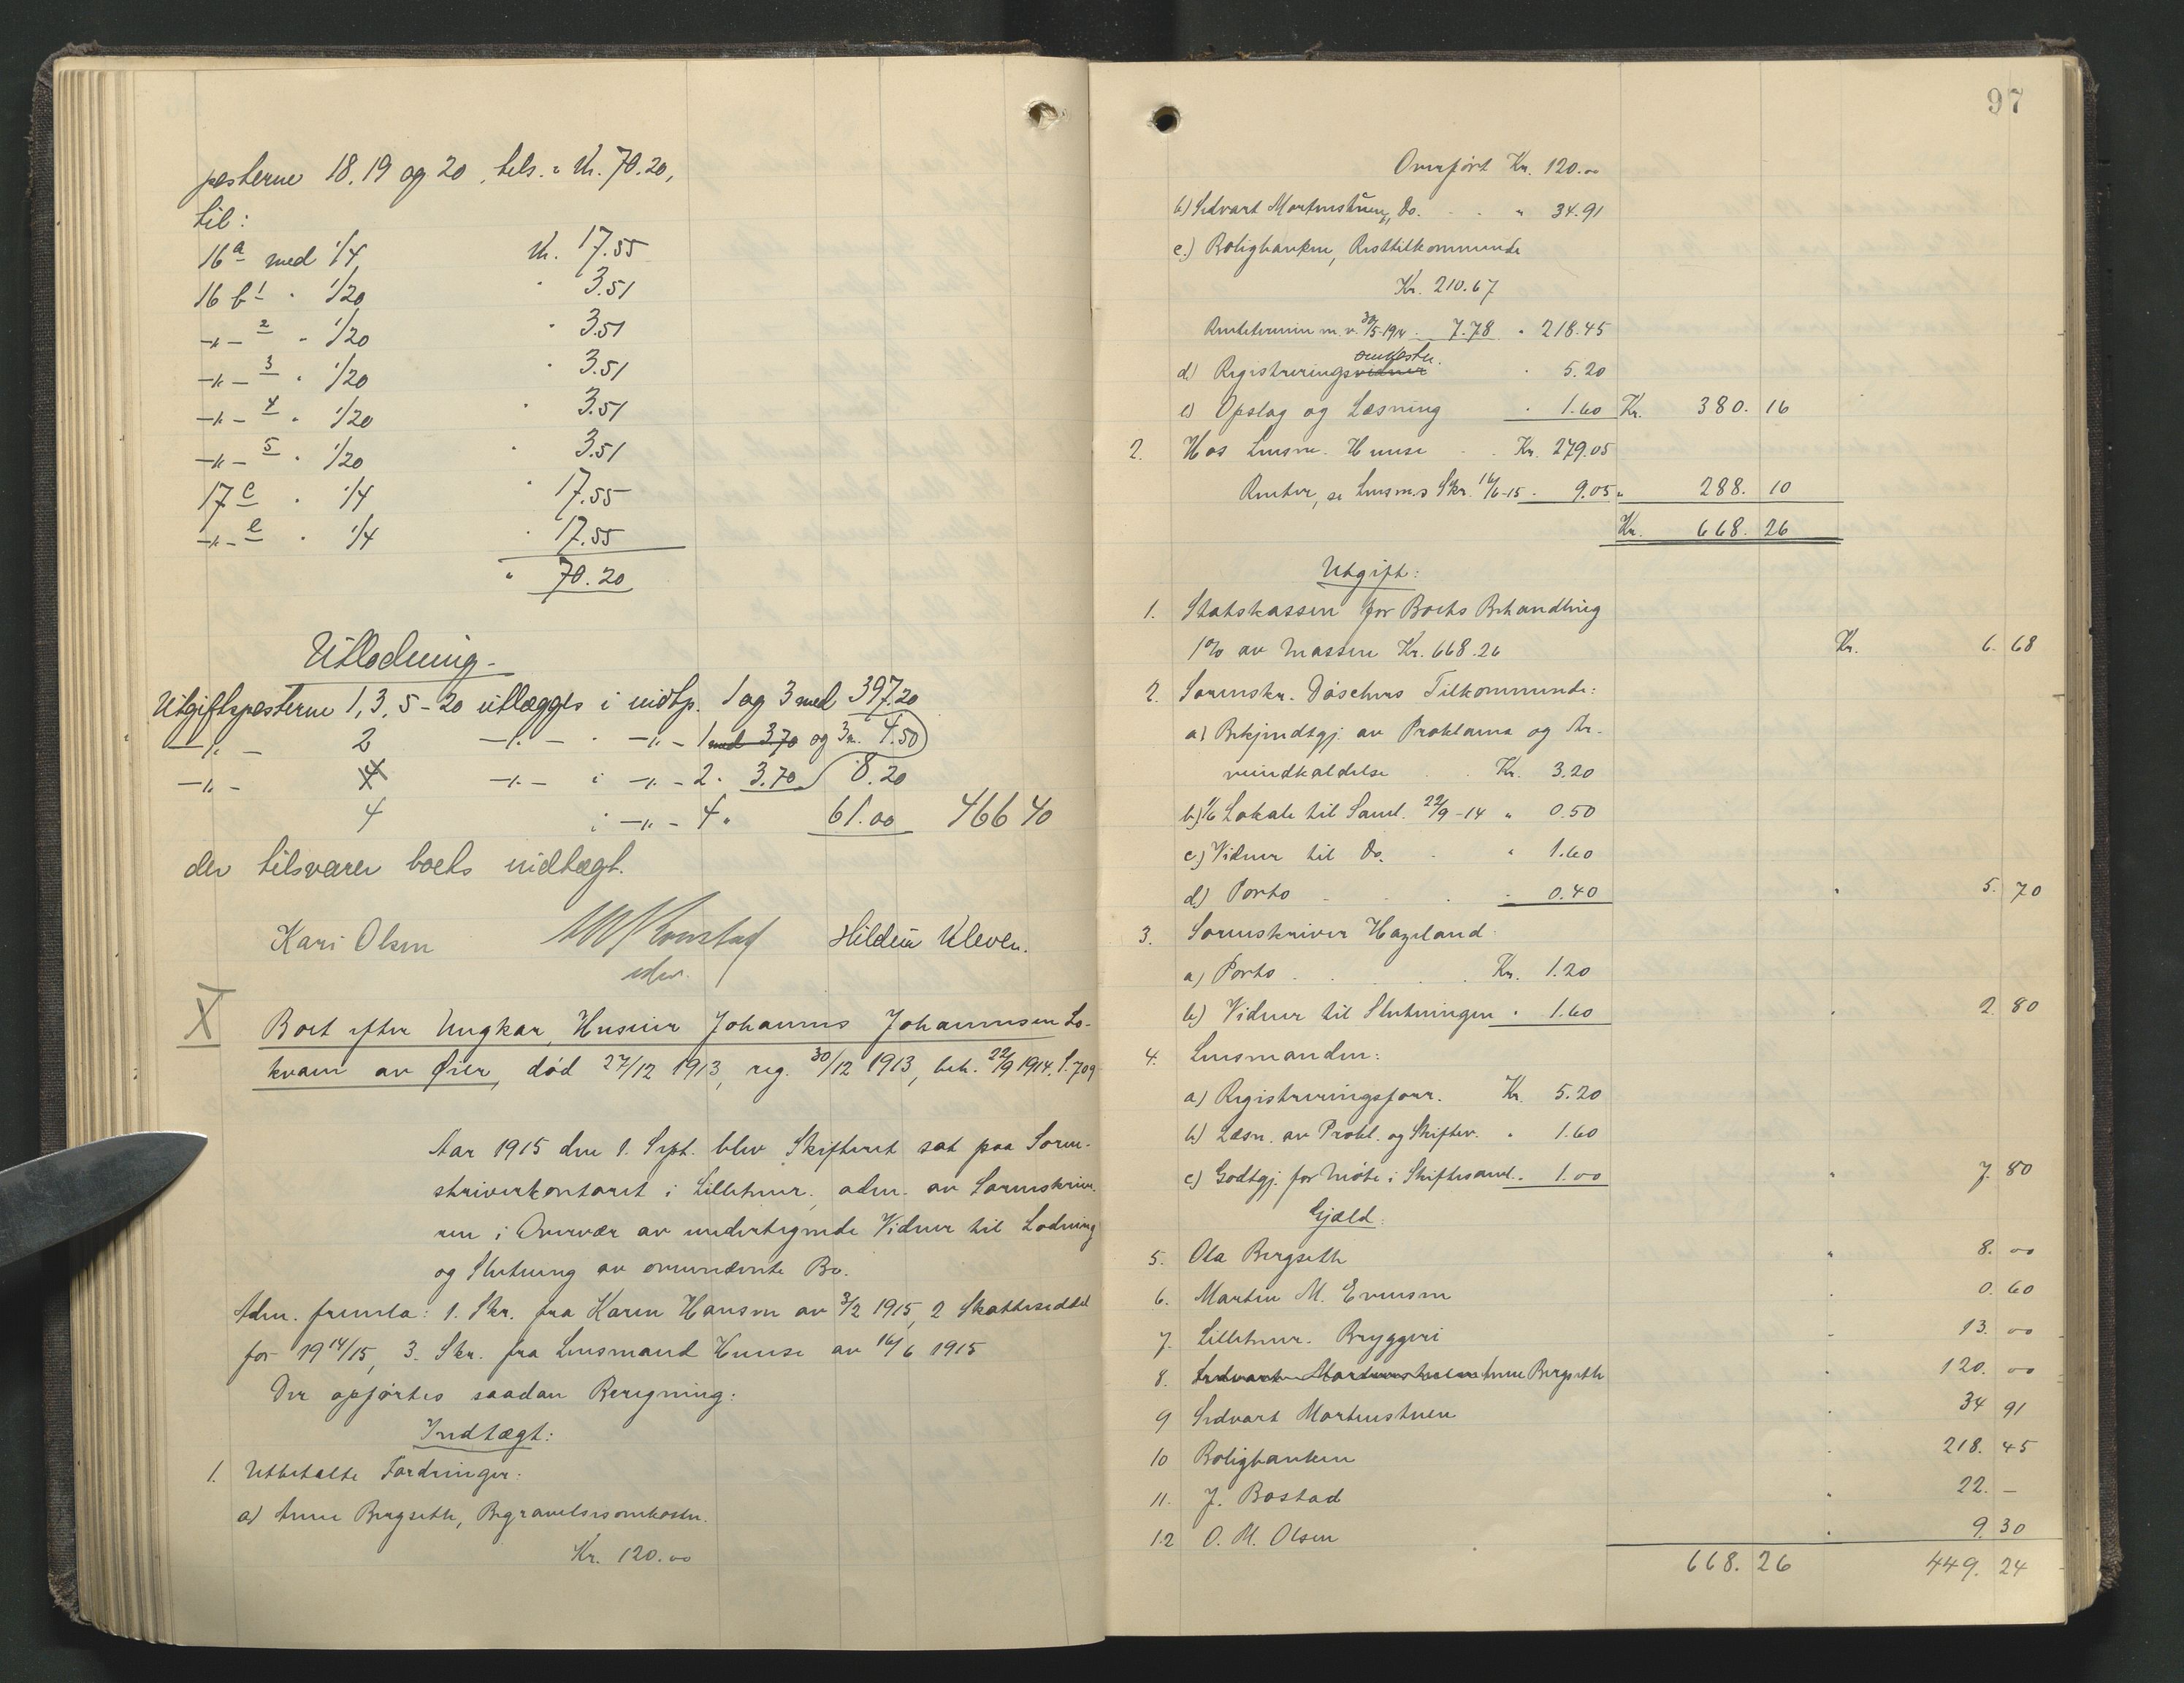 posterne 18.19 og 20, tils. = Kr. 70.20,
til:
16 a med 1/4, Kr. 17.55
16 b 1 " 1/20 " 3.51
-"- 2 " 1/20 " 3.51
-"- 3 " 1/20 " 3.51
-"- 4 " 1/20 " 3.51
-"- 5 " 1/20 " 3.51
17 c " 1/4 " 17.55
-"- e " 1/4 " 17.55
" 70.20
Utlodning -
Utgiftsposterne 1, 3, 5-20 utlægges i indtp. 1 og 3 med 397.20
-"- 2 -"- " -"- 1 med 3.70 og 3 m. 4.50
-"- 4 -"- i -"- 2 " 3.70 8.20
4 i -"- 4 " 61.00 466 40
der tilsvarer boets indtægt.
Kari Olsen Hildeur Kleven.
X Boet efter Ungkar, Huseier Johannes Johannesen Lo-
kvam av Øier, død 27/12 1913, reg. 30/12 1913, beh. 22/9 1914. S. 709
Aar 1915 den 1. Sept. blev Skifteret sat paa Soren-
skriverkontoret i Lillehmr. adm. av Sorenskrive-
ren i Overvær av undertegnede Vidner til Lodning
og Slutning av ovennævnte Bo.
Adm. fremla: 1. Skr. fra Karen Hansen av 3/2 1915, 2 Skatteseddel
for 1914/15, 3. Skr. fra Lensmand Hunse av 16/6 1915
Der opførtes saadan Beregning:
Indtægt:
1. Utbetalte Fordringer:
a) Anne Bergseth, Begravelsesomkostn.
Kr. 120.00
97
Overført Kr. 120.00
b) Sedvart Martinstuen, Do. " 34.91
c.) Boligbanken, Resttilkommende
Kr. 210.67
Rentetermin m. v. 30/5-1914 . 7.78 " 218.45
omkostn.
d) Registreringsvidner " 5.20
e) Opslag og Læsning " 1.60 Kr. 380. 16
2. Hos Lensm. Hunse Kr. 279.05
Renter, se Lensm.s Skr. 16/6-15 . 9.05 " 288. 10
Kr. 668. 26
Utgift:
1. Statskassen for Boets Behandling
1% av Massen Kr. 668.26 Kr. 6. 68
2. Sorenskr. Döschers Tilkommende:
a) Bekjendtgj. av Proklama og Ar-
veindkaldelse Kr. 3.20
b) 1/6 Lokale til Saml. 22/9-14 " 0.50
c) Vidner til Do. " 1.60
d) Porto " 0.40 " 5. 70
3. Sorenskriver Hazeland:
a) Porto Kr. 1.20
b) Vidner til Slutningen " 1.60 " 2. 80
4. Lensmanden:
a) Registreringsforr. Kr. 5.20
b) Læsn. av Prokl. og Skiftev. " 1.60
c) Godtgj. for Møte i Skiftesaml. " 1.00 " 7. 80
Gjæld:
5. Ola Bergseth " 8. 00
6. Martin M. Evensen " 0. 60
7. Lillehmr. Bryggeri " 13. 00
8. Sedvart Martinstuen Anne Bergseth " 120. 00
9 Sedvart Martinstuen " 34 91
10 Boligbanken " 218. 45
11. J. Bostad " 22. -
12 O. M. Olsen " 9. 30
668. 26 449. 24